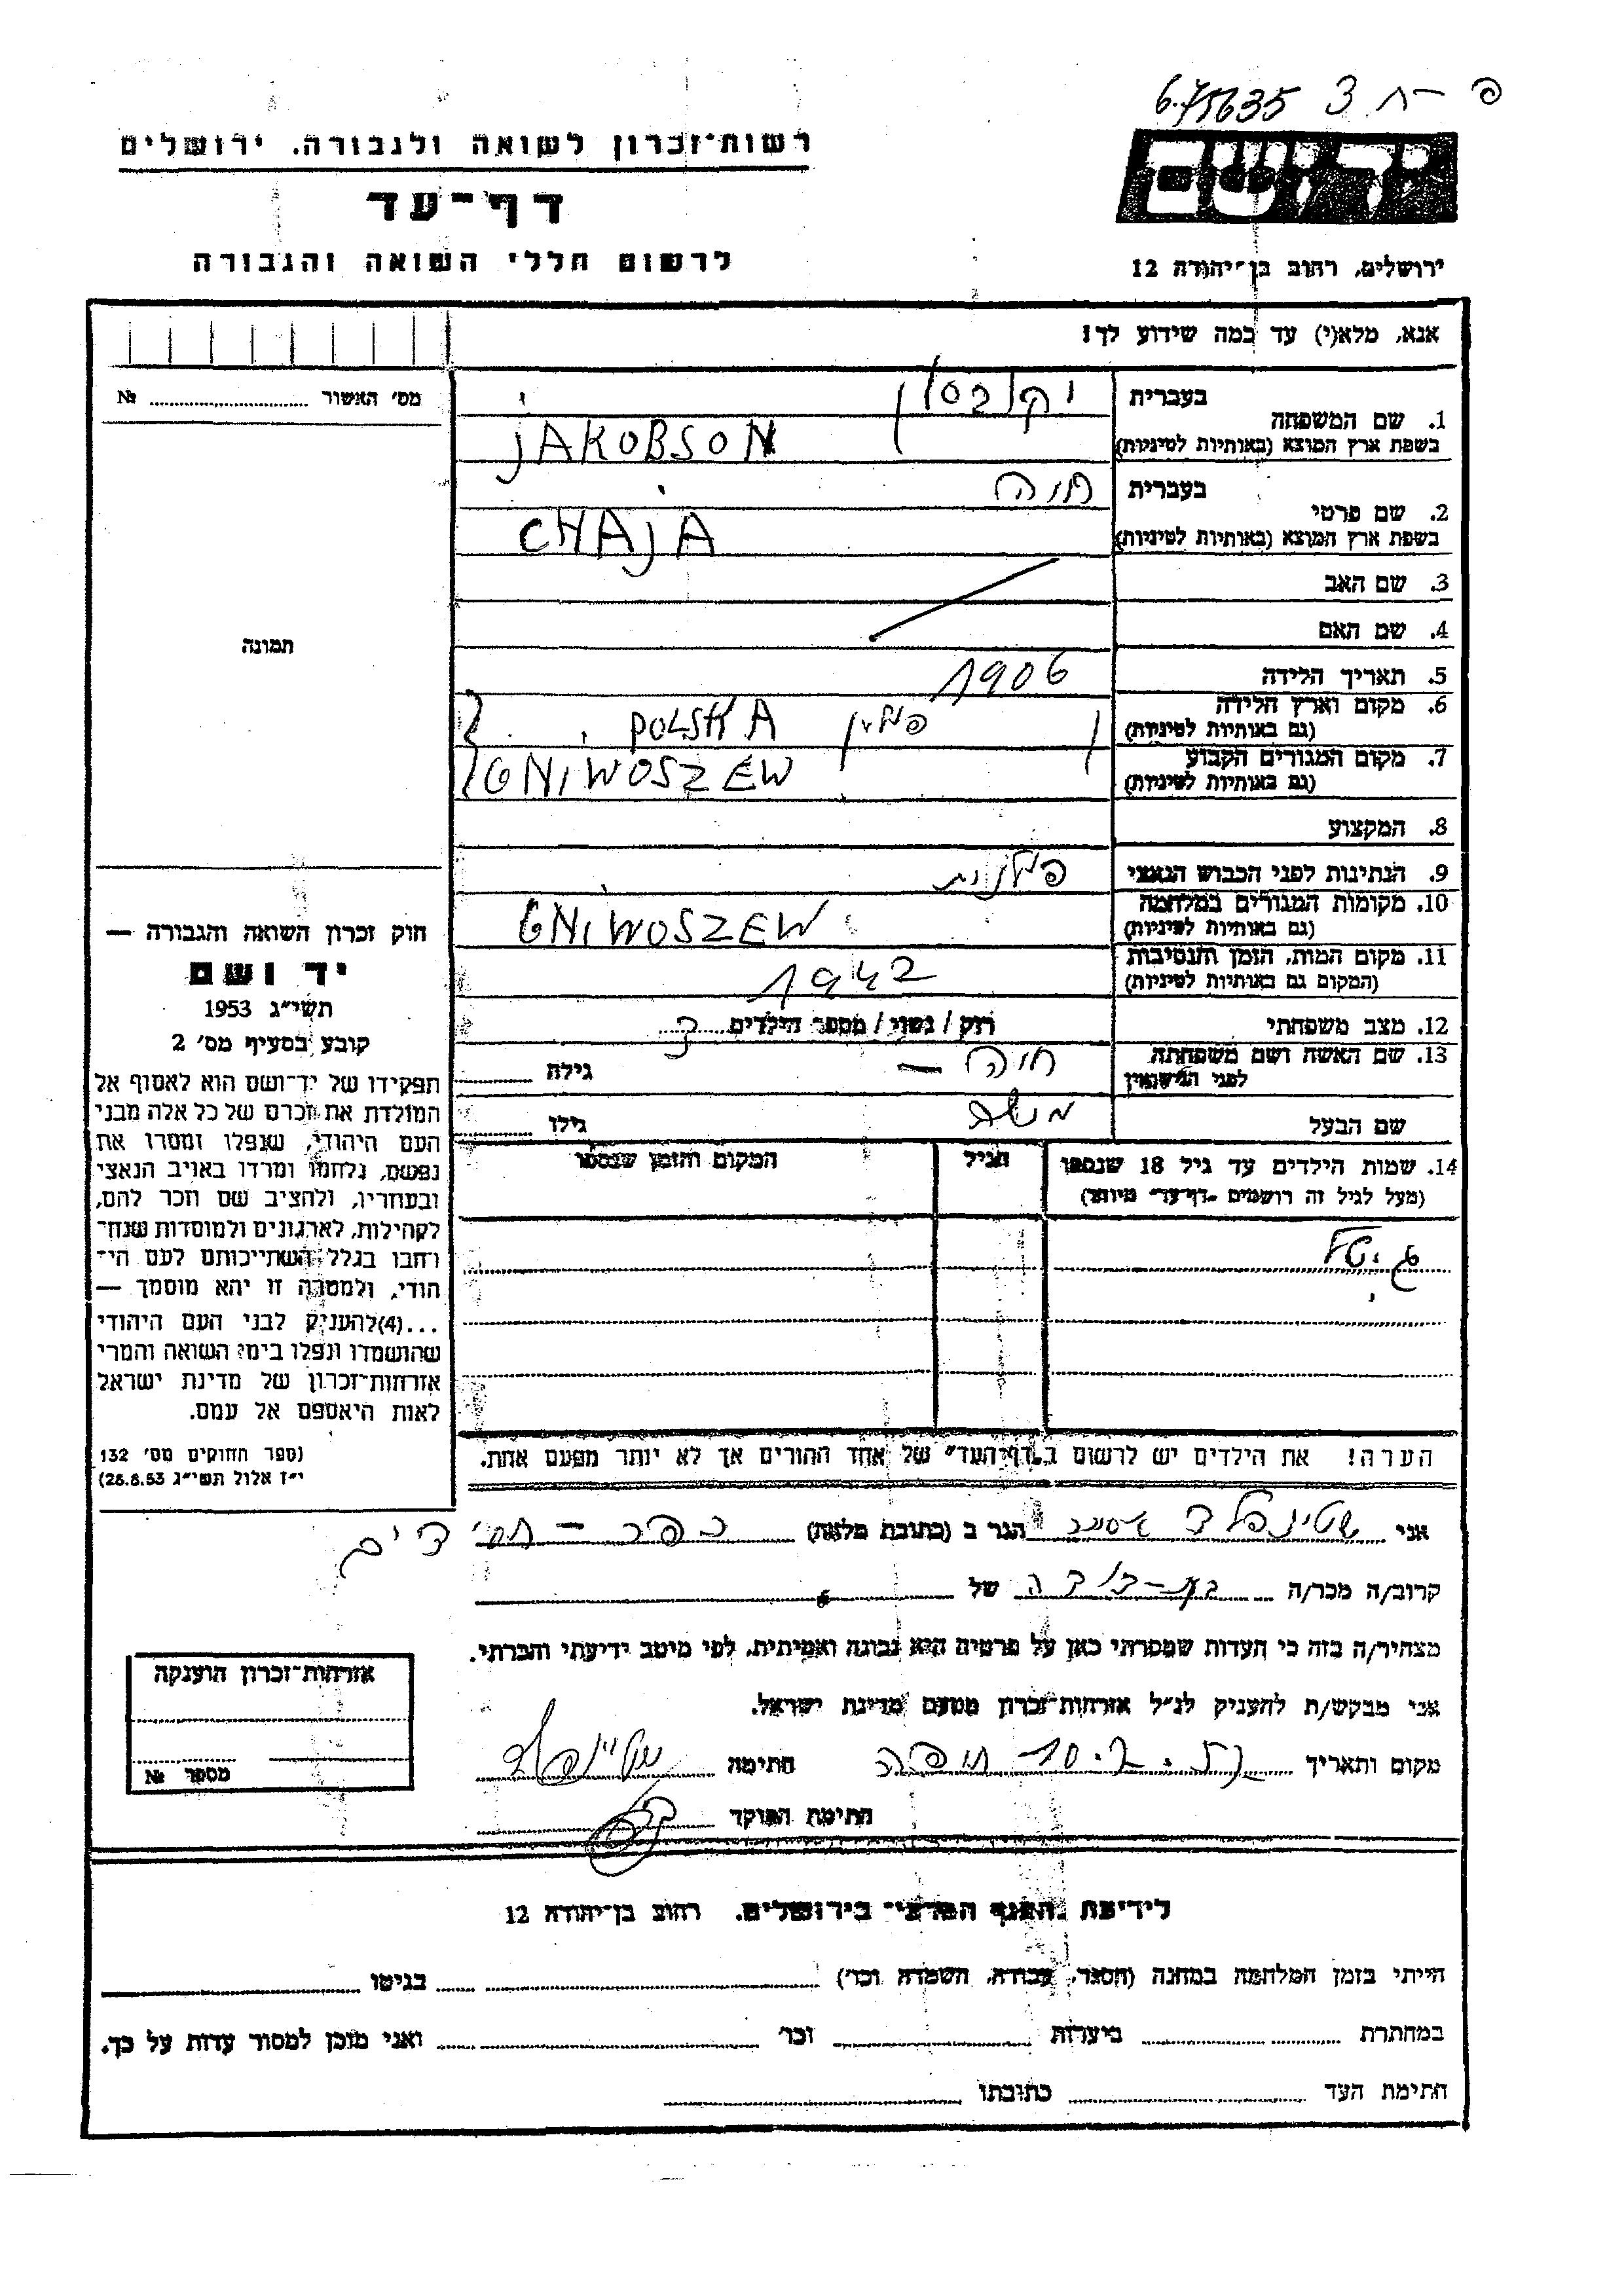 רשות־זכרון לשואה ולגבורה. ירושלים
דף־עד
לרשום חללי השואה והגבורה
יד ושם
ירושלים, רחוב בן־יהודה 12
אנא, מלא(י) עד כמה שידוע לך!
מס׳ האשור №
תמונה
1. שם המשפחה
בעברית יקובסון
בשפת ארץ המוצא (באותיות לטיניות) JAKOBSON
2. שם פרטי
בעברית חיה
בשפת ארץ המוצא (באותיות לטיניות) CHAJA
3. שם האב
4. שם האם
5. תאריך הלידה 1906
6. מקום וארץ הלידה פולין POLSKA
(גם באותיות לטיניות)
7. מקום המגורים הקבוע GNIWOSZEW
(גם באותיות לטיניות)
8. המקצוע
9. הנתינות לפני הכבוש הנאצי פולנית
10. מקומות המגורים במלחמה GNIWOSZEW
(גם באותיות לטיניות)
11. מקום המות, הזמן והנסיבות 1942
(המקום גם באותיות לטיניות)
12. מצב משפחתי רוק / נשוי / מספר הילדים
13. שם האשה ושם משפחתה חיה — גילה
לפני הנישואין
שם הבעל משה גילו
14. שמות הילדים עד גיל 18 שנספו הגיל המקום והזמן שנספו
(מעל לגיל זה רושמים „דף־עד״ מיוחד)
גיטל
הערה! את הילדים יש לרשום ב„דף־העד״ של אחד ההורים אך לא יותר מפעם אחת.
חוק זכרון השואה והגבורה —
יד ושם
תשי״ג 1953
קובע בסעיף מס׳ 2
תפקידו של יד־ושם הוא לאסוף אל
המולדת את זכרם של כל אלה מבני
העם היהודי, שנפלו ומסרו את
נפשם, נלחמו ומרדו באויב הנאצי
ובעוזריו, ולהציב שם וזכר להם,
לקהילות, לארגונים ולמוסדות שנח־
רחבו בגלל השתייכותם לעם הי־
הודי, ולמטרה זו יהא מוסמך —
...(4)להעניק לבני העם היהודי
שהושמדו ונפלו בימי השואה והמרי
אזרחות־זכרון של מדינת ישראל
לאות היאספם אל עמם.
(ספר החוקים מס׳ 132
י״ז אלול תשי״ג 28.8.53)
אני שטינפלד אסתר הגר ב (כתובת מלאה) כפר־חסידים
קרוב/ה מכר/ה בת־דודה של
מצהיר/ה בזה כי העדות שמסרתי כאן על פרטיה היא נכונה ואמיתית, לפי מיטב ידיעתי והכרתי.
אני מבקש/ת להעניק לנ״ל אזרחות־זכרון מטעם מדינת ישראל.
מקום ותאריך חיפה חתימה שטיינפלד
חתימת הפוקד
אזרחות־זכרון הוענקה
מספר №
לידיעת הארכיון המרכזי בירושלים. רחוב בן־יהודה 12
הייתי בזמן המלחמה במחנה (הסגר, עבודה, השמדה וכו׳) בגיטו
במחתרת ביערות וכו׳ ואני מוכן למסור עדות על כך.
חתימת העד כתובתו